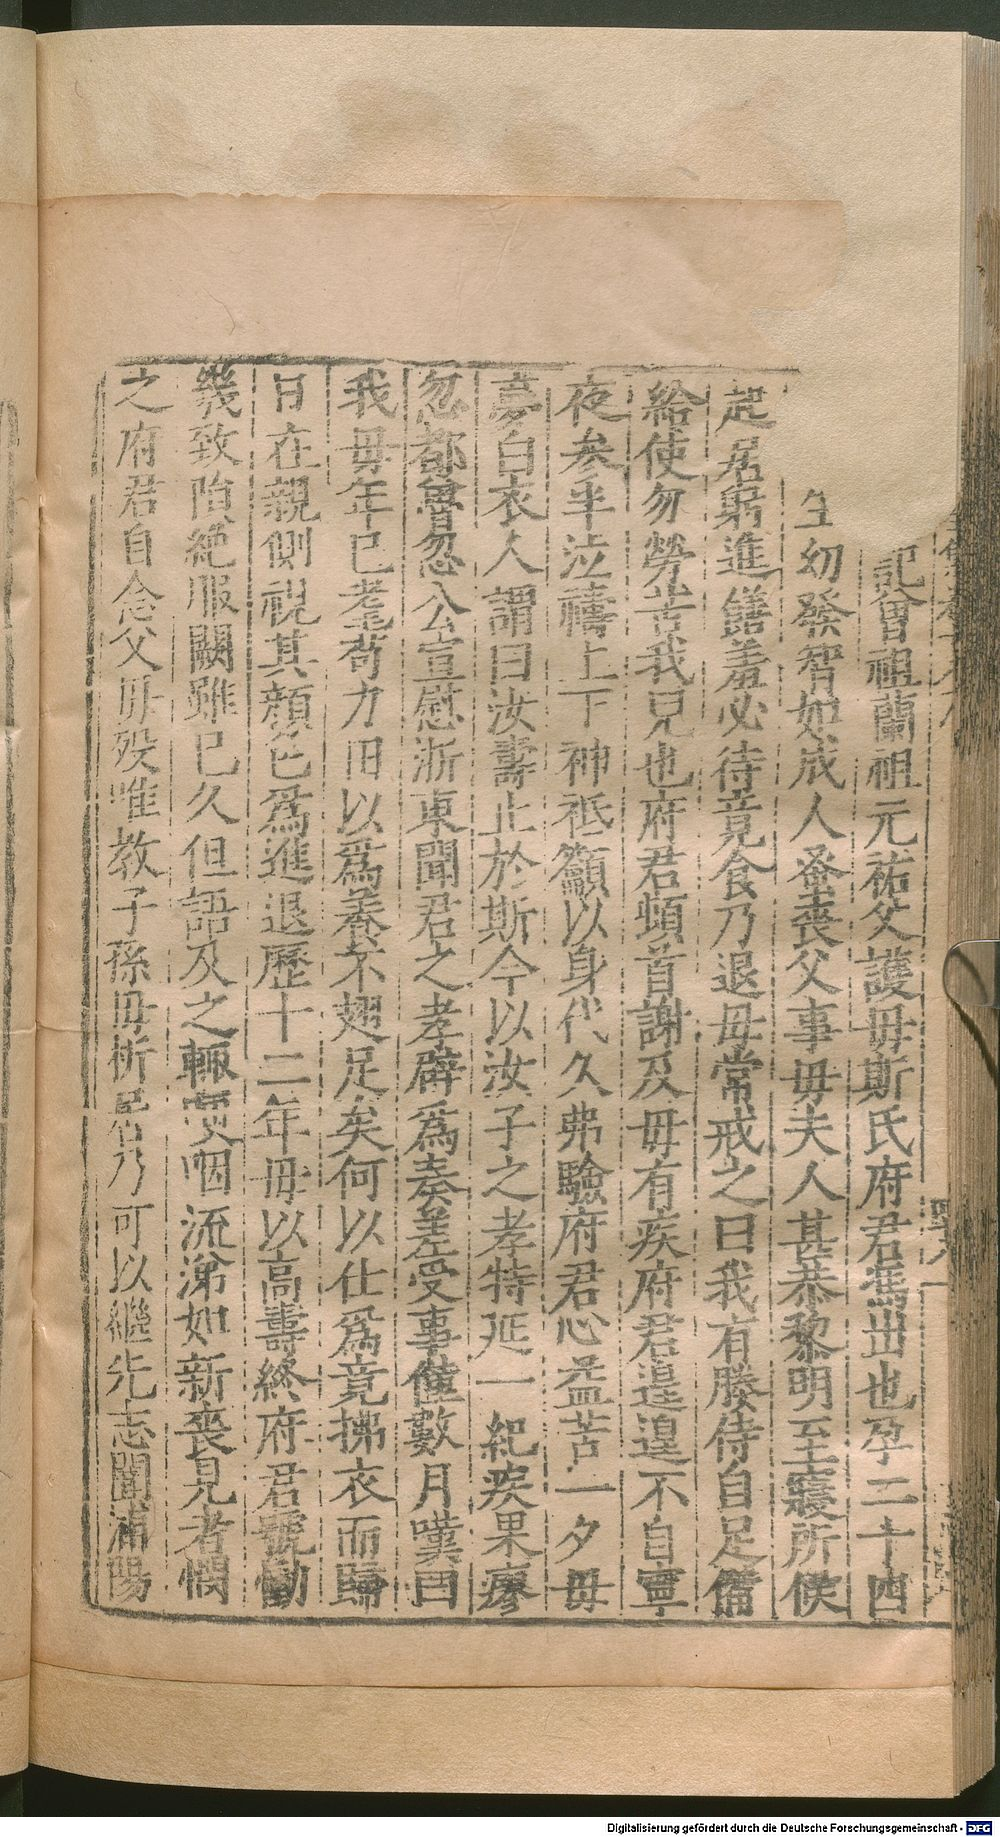 記曾祖蘭祖元祐父護毋斯氏府君馮出也孕二十四
生幼發智如成人蚤喪父事毋夫人甚恭黎明至寢所候
起居躬進饍羞必待竟食乃退毋常戒之曰我有媵侍自足備
給使勿勞苦我兒也府君頓首謝及毋有疾府君遑遑不自寧
夜參半泣禱上下神祗籲以身代久弗驗府君心益苦一夕毋
夢白衣人謂曰汝壽止於斯今以汝子之孝特延一紀疾果瘳
忽都魯忽公宣慰浙東聞君之孝辟爲奏差受事僅數月嘆曰
我毋年已耄苟力田以爲養不翅足矣何以仕爲竟拂衣而歸
日在親側視其顔色爲進退歷十二年毋以高壽終府君號慟
幾致隕絶服闋雖已久但語及之輒哽咽流涕如新喪見者憫
之府君自念父毋歿唯教子孫毋析居乃可以繼先志聞浦陽
Digitalisierung gefördert durch die Deutsche Forschungsgemeinschaft - DFG